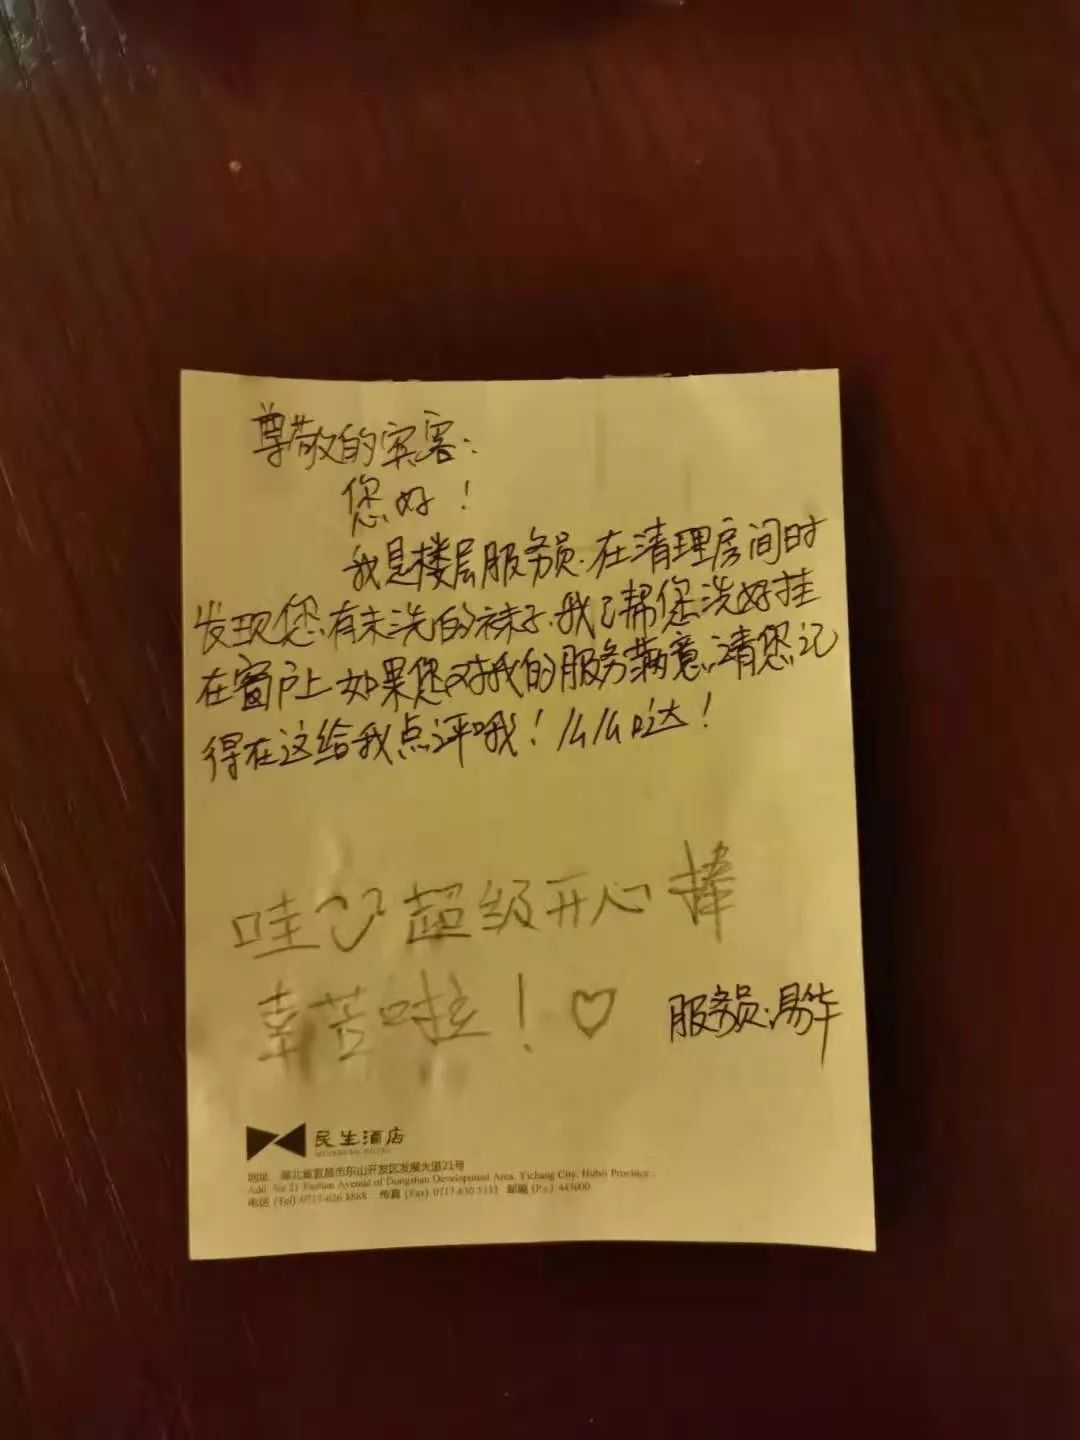 尊敬的宾客：
您好！
我是楼层服务员.在清理房间时
发现您有未洗的袜子.我已帮您洗好挂
在窗户上.如果您对我的服务满意,请您记
得在这给我点评哦！么么哒！
哇 超级开心 棒
幸苦啦！♡
服务员:易华
民生酒店
地址：湖北省宜昌市东山开发区发展大道21号
Add: No.21 Fazhan Avenue of Dongshan Development Area, Yichang City, Hubei Province.
电话 (Tel):0717-626 8868 传真 (Fax): 邮编 (P.c): 443000